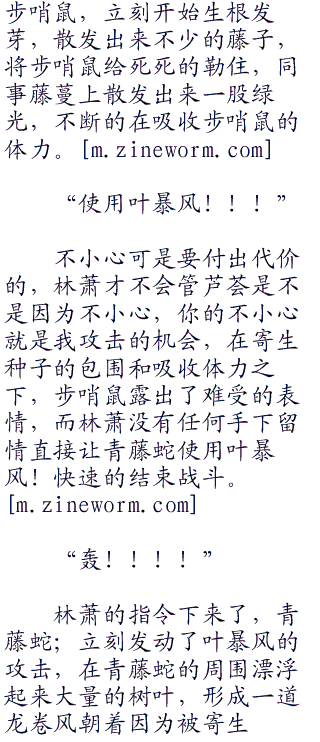 步哨鼠，立刻开始生根发
芽，散发出来不少的藤子，
将步哨鼠给死死的勒住，同
事藤蔓上散发出来一股绿
光，不断的在吸收步哨鼠的
体力。[m.zineworm.com]
“使用叶暴风！！！”
不小心可是要付出代价
的，林萧才不会管芦荟是不
是因为不小心，你的不小心
就是我攻击的机会，在寄生
种子的包围和吸收体力之
下，步哨鼠露出了难受的表
情，而林萧没有任何手下留
情直接让青藤蛇使用叶暴
风！快速的结束战斗。
[m.zineworm.com]
“轰！！！！”
林萧的指令下来了，青
藤蛇；立刻发动了叶暴风的
攻击，在青藤蛇的周围漂浮
起来大量的树叶，形成一道
龙卷风朝着因为被寄生